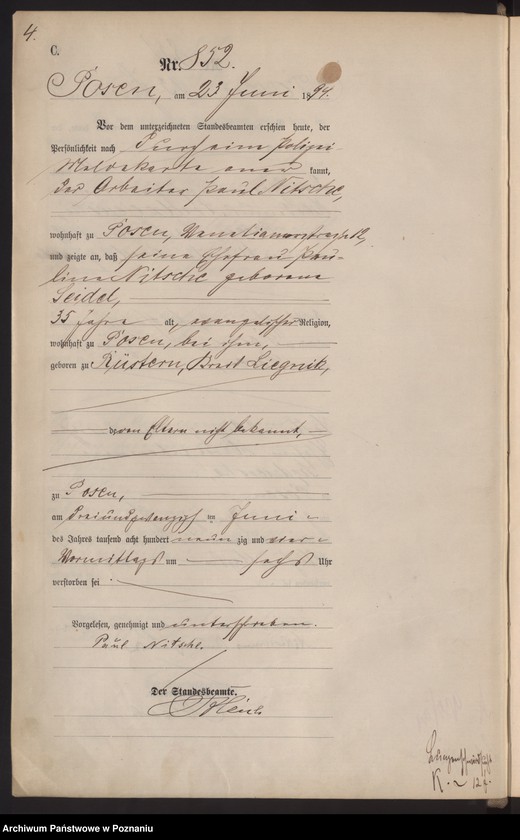 4.
C.
Nr. 852.
Posen, am 23 Juni 1894.
Vor dem unterzeichneten Standesbeamten erschien heute, der
Persönlichkeit nach durch eine Polizei
Meldekarte aner kannt,
der Arbeiter Paul Nitsche,
wohnhaft zu Posen, Venetianerstrasse 12,
und zeigte an, daß seine Ehefrau Pau-
line Nitsche geborene
Seidel,
35 Jahre alt, evangelischer Religion,
wohnhaft zu Posen, bei ihm,
geboren zu Rüstern, Kreis Liegnitz,
deren Eltern nicht bekannt,
zu Posen,
am dreiundzwanzigsten Juni
des Jahres tausend acht hundert neun zig und vier
Vormittags um sechs Uhr
verstorben sei
Vorgelesen, genehmigt und unterschrieben.
Paul Nitsche.
Der Standesbeamte.
K. 124.
Archiwum Państwowe w Poznaniu
szukajwarchiwach.gov.pl